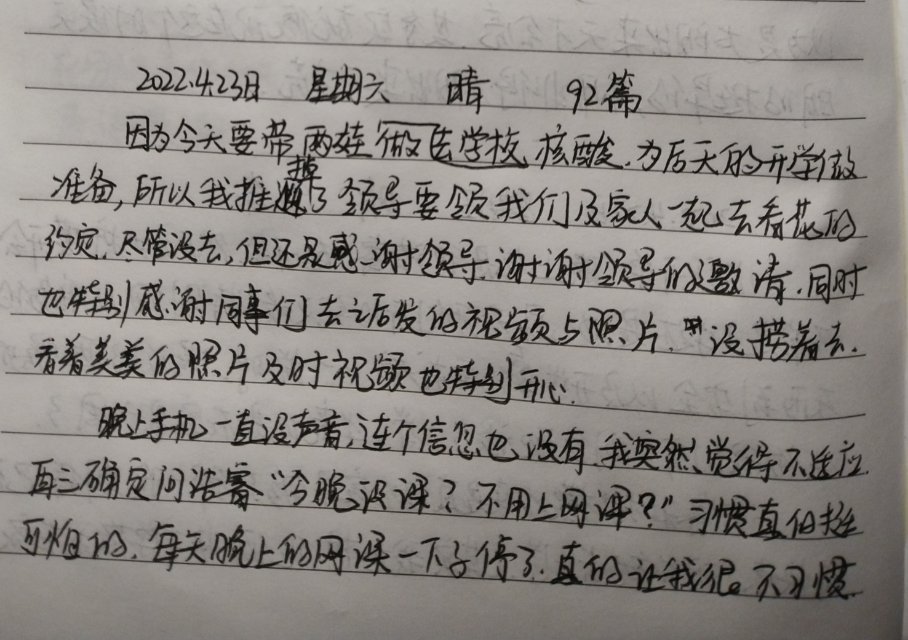 2022.4.23日 星期六 晴 92篇
因为今天要带两娃做去学校核酸,为后天的开学做
准备,所以我推掉了领导要领我们及家人一起去看花的
约定.尽管没去,但还是感谢领导.谢谢领导的邀请.同时
也特别感谢同事们去之后发的视频与照片.没捞着去.
看着美美的照片及时视频也特别开心.
晚上手机一直没声音,连个信息也没有.我突然觉得不适应.
再三确定问浩睿“今晚没课?不用上网课?”习惯真的挺
可怕的.每天晚上的网课一下子停了.真的让我很不习惯.